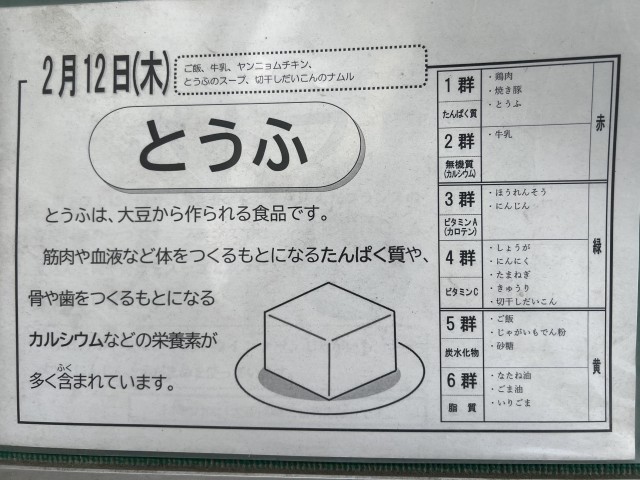 2月12日(木)
ご飯、牛乳、ヤンニョムチキン、
とうふのスープ、切干しだいこんのナムル
とうふ
とうふは、大豆から作られる食品です。
筋肉や血液など体をつくるもとになるたんぱく質や、
骨や歯をつくるもとになる
カルシウムなどの栄養素が
多く含まれています。
ふく
1群
たんぱく質
・鶏肉
・焼き豚
・とうふ
2群
無機質
(カルシウム)
・牛乳
赤
3群
ビタミンA
(カロテン)
・ほうれんそう
・にんじん
4群
ビタミンC
・しょうが
・にんにく
・たまねぎ
・きゅうり
・切干しだいこん
緑
5群
炭水化物
・ご飯
・じゃがいもでん粉
・砂糖
6群
脂質
・なたね油
・ごま油
・いりごま
黄